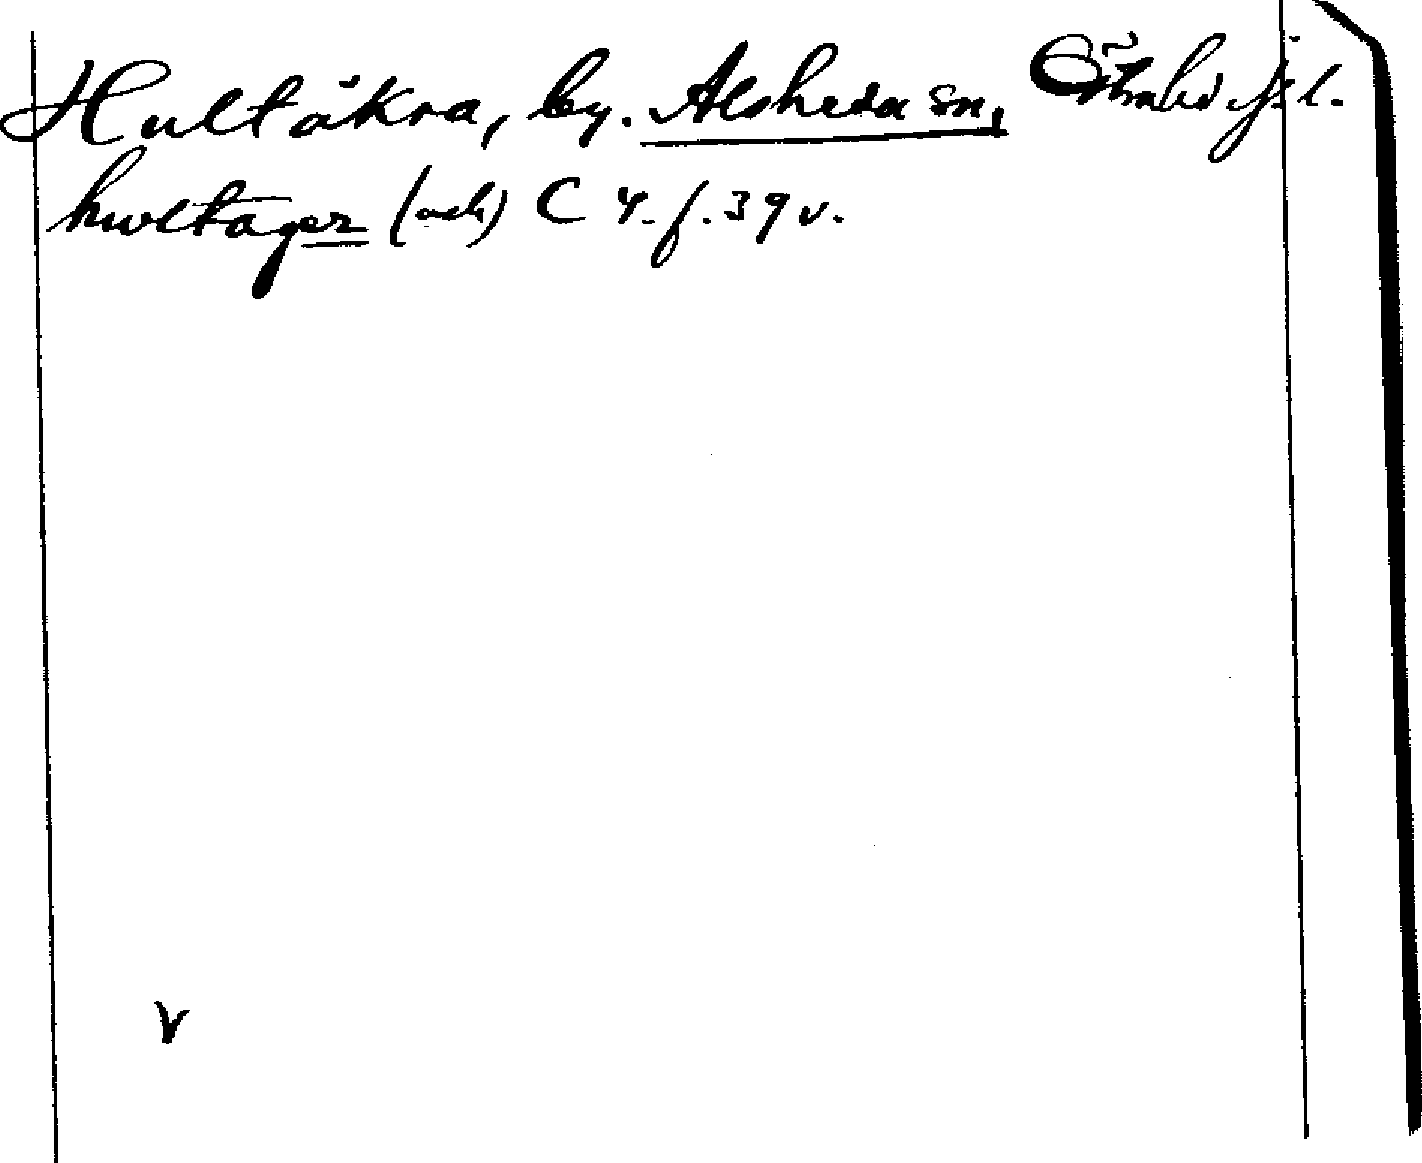 Hultåkra, by. Alsheda sn, Östra hd Jkl.
hwltager (ack) C 4. f. 39 v.
v